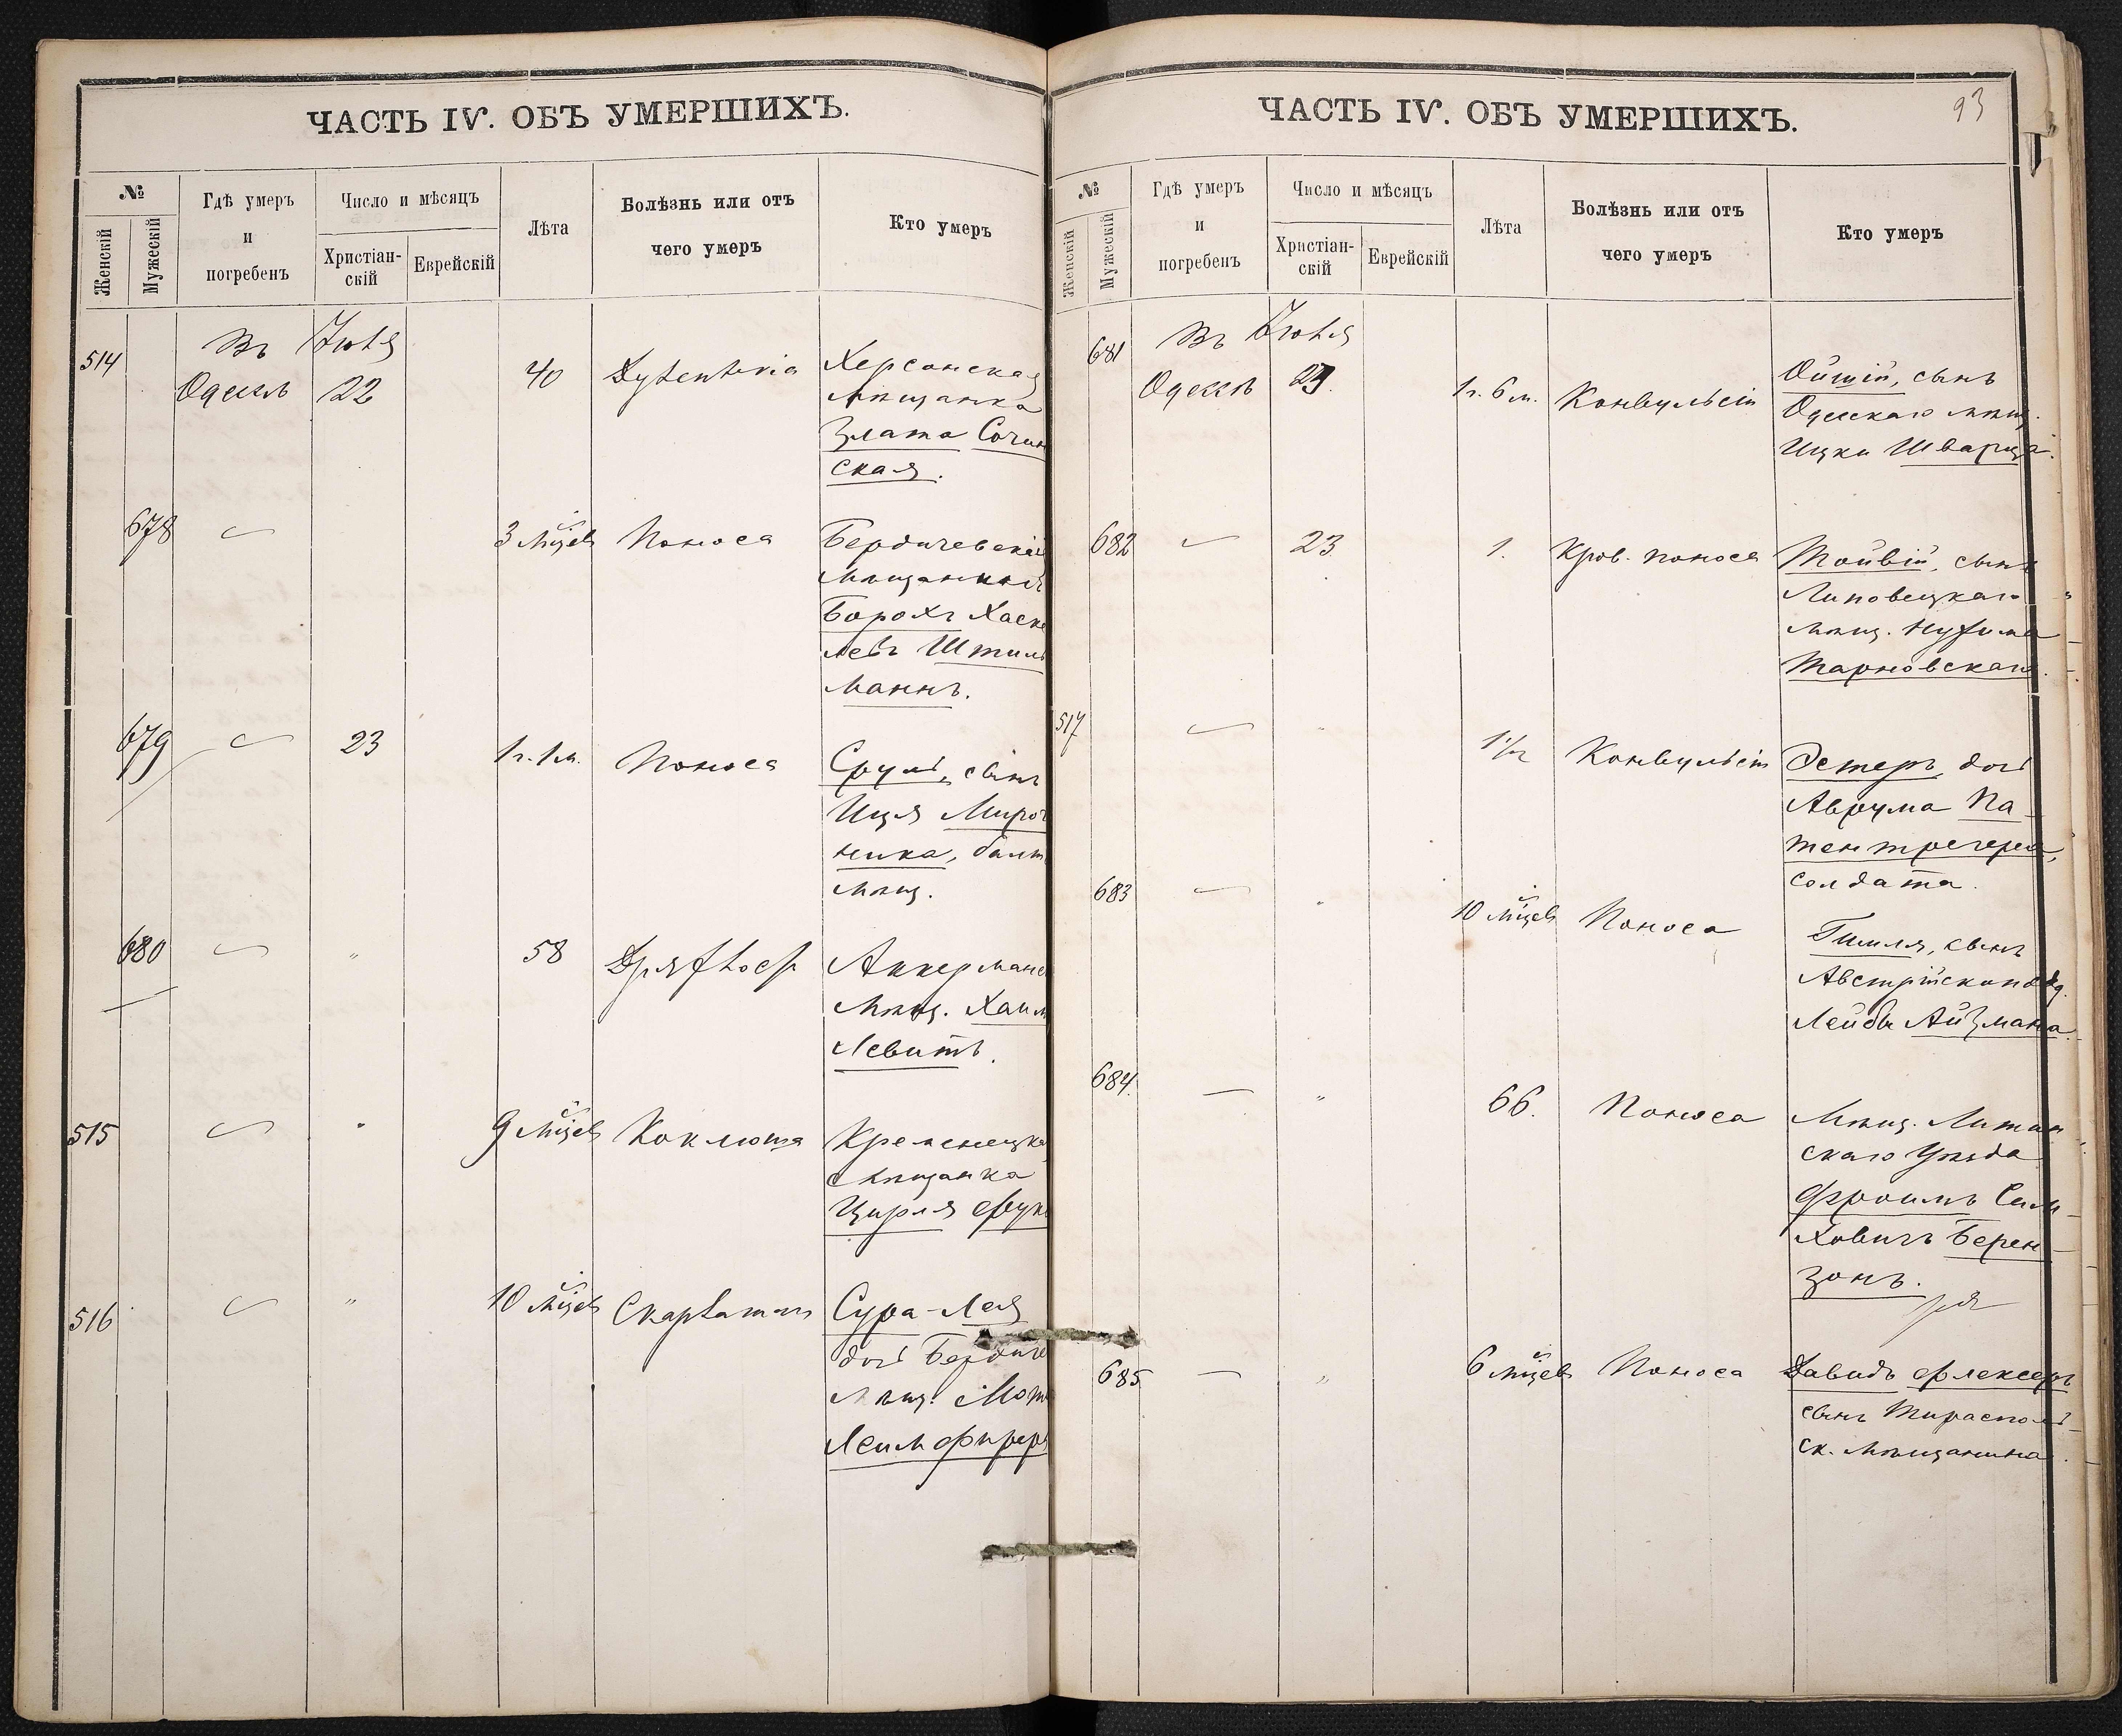 ЧАСТЬ IV. ОБЪ УМЕРШИХЪ.
№
Женскій
Мужескій
Гдѣ умеръ
и
погребенъ
Число и мѣсяцъ
Христіан-
скій
Еврейскій
Лѣта
Болѣзнь или отъ
чего умеръ
Кто умеръ
514 Въ Одессѣ Іюля 22 40
Херсонская
мѣщанка
Злата Сочин
ская.
678 3 мѣсяц. Поноса
Бердичевскій
мѣщанинъ
Борохъ Хаске
левъ Штиль
манъ.
679 23 1 г. 1 м. Поноса
Сруль, сынъ
Иця Мироч
ника, балт.
мѣщ.
680 " 58 Дряхлость
Аккерманс
мѣщ. Хаим
Левитъ.
515 " 9 мѣсяц. Коклюша
Кременецка
мѣщанка
Цирля Фукс
516 " 10 мѣсяц. Скарлатин
Сура-Лея
дочь Бердиче
мѣщ. Мот
ЧАСТЬ IV. ОБЪ УМЕРШИХЪ.
93
№
Женскій
Мужескій
Гдѣ умеръ
и
погребенъ
Число и мѣсяцъ
Христіан-
скій
Еврейскій
Лѣта
Болѣзнь или отъ
чего умеръ
Кто умеръ
681 Въ Одессѣ Іюля 23. 1 г. 6 м. Конвульсіи
сынъ
Одесскаго мѣщ.
Ицки Шварца.
682 23 1. Кров. поноса
Тойвій, сынъ
Липовецкаго
мѣщ. Нухима
Тарновскаго.
517 " 1 1/2 Конвульсіи
Эстеръ, дочь
Аврума Па-
тентрегера,
солдата.
683 " 10 мѣсяц. Поноса
Гилля, сынъ
Австрійск. подд.
Лейбы Айзмана.
684. " 66. Поноса
Мѣщ. Литин
скаго уѣзда
Фроимъ Сим
ховичъ Берен-
зонъ.
685 " 6 мѣсяц. Поноса
Давидъ Флексеръ
сынъ Тирасполь-
ск. мѣщанина.